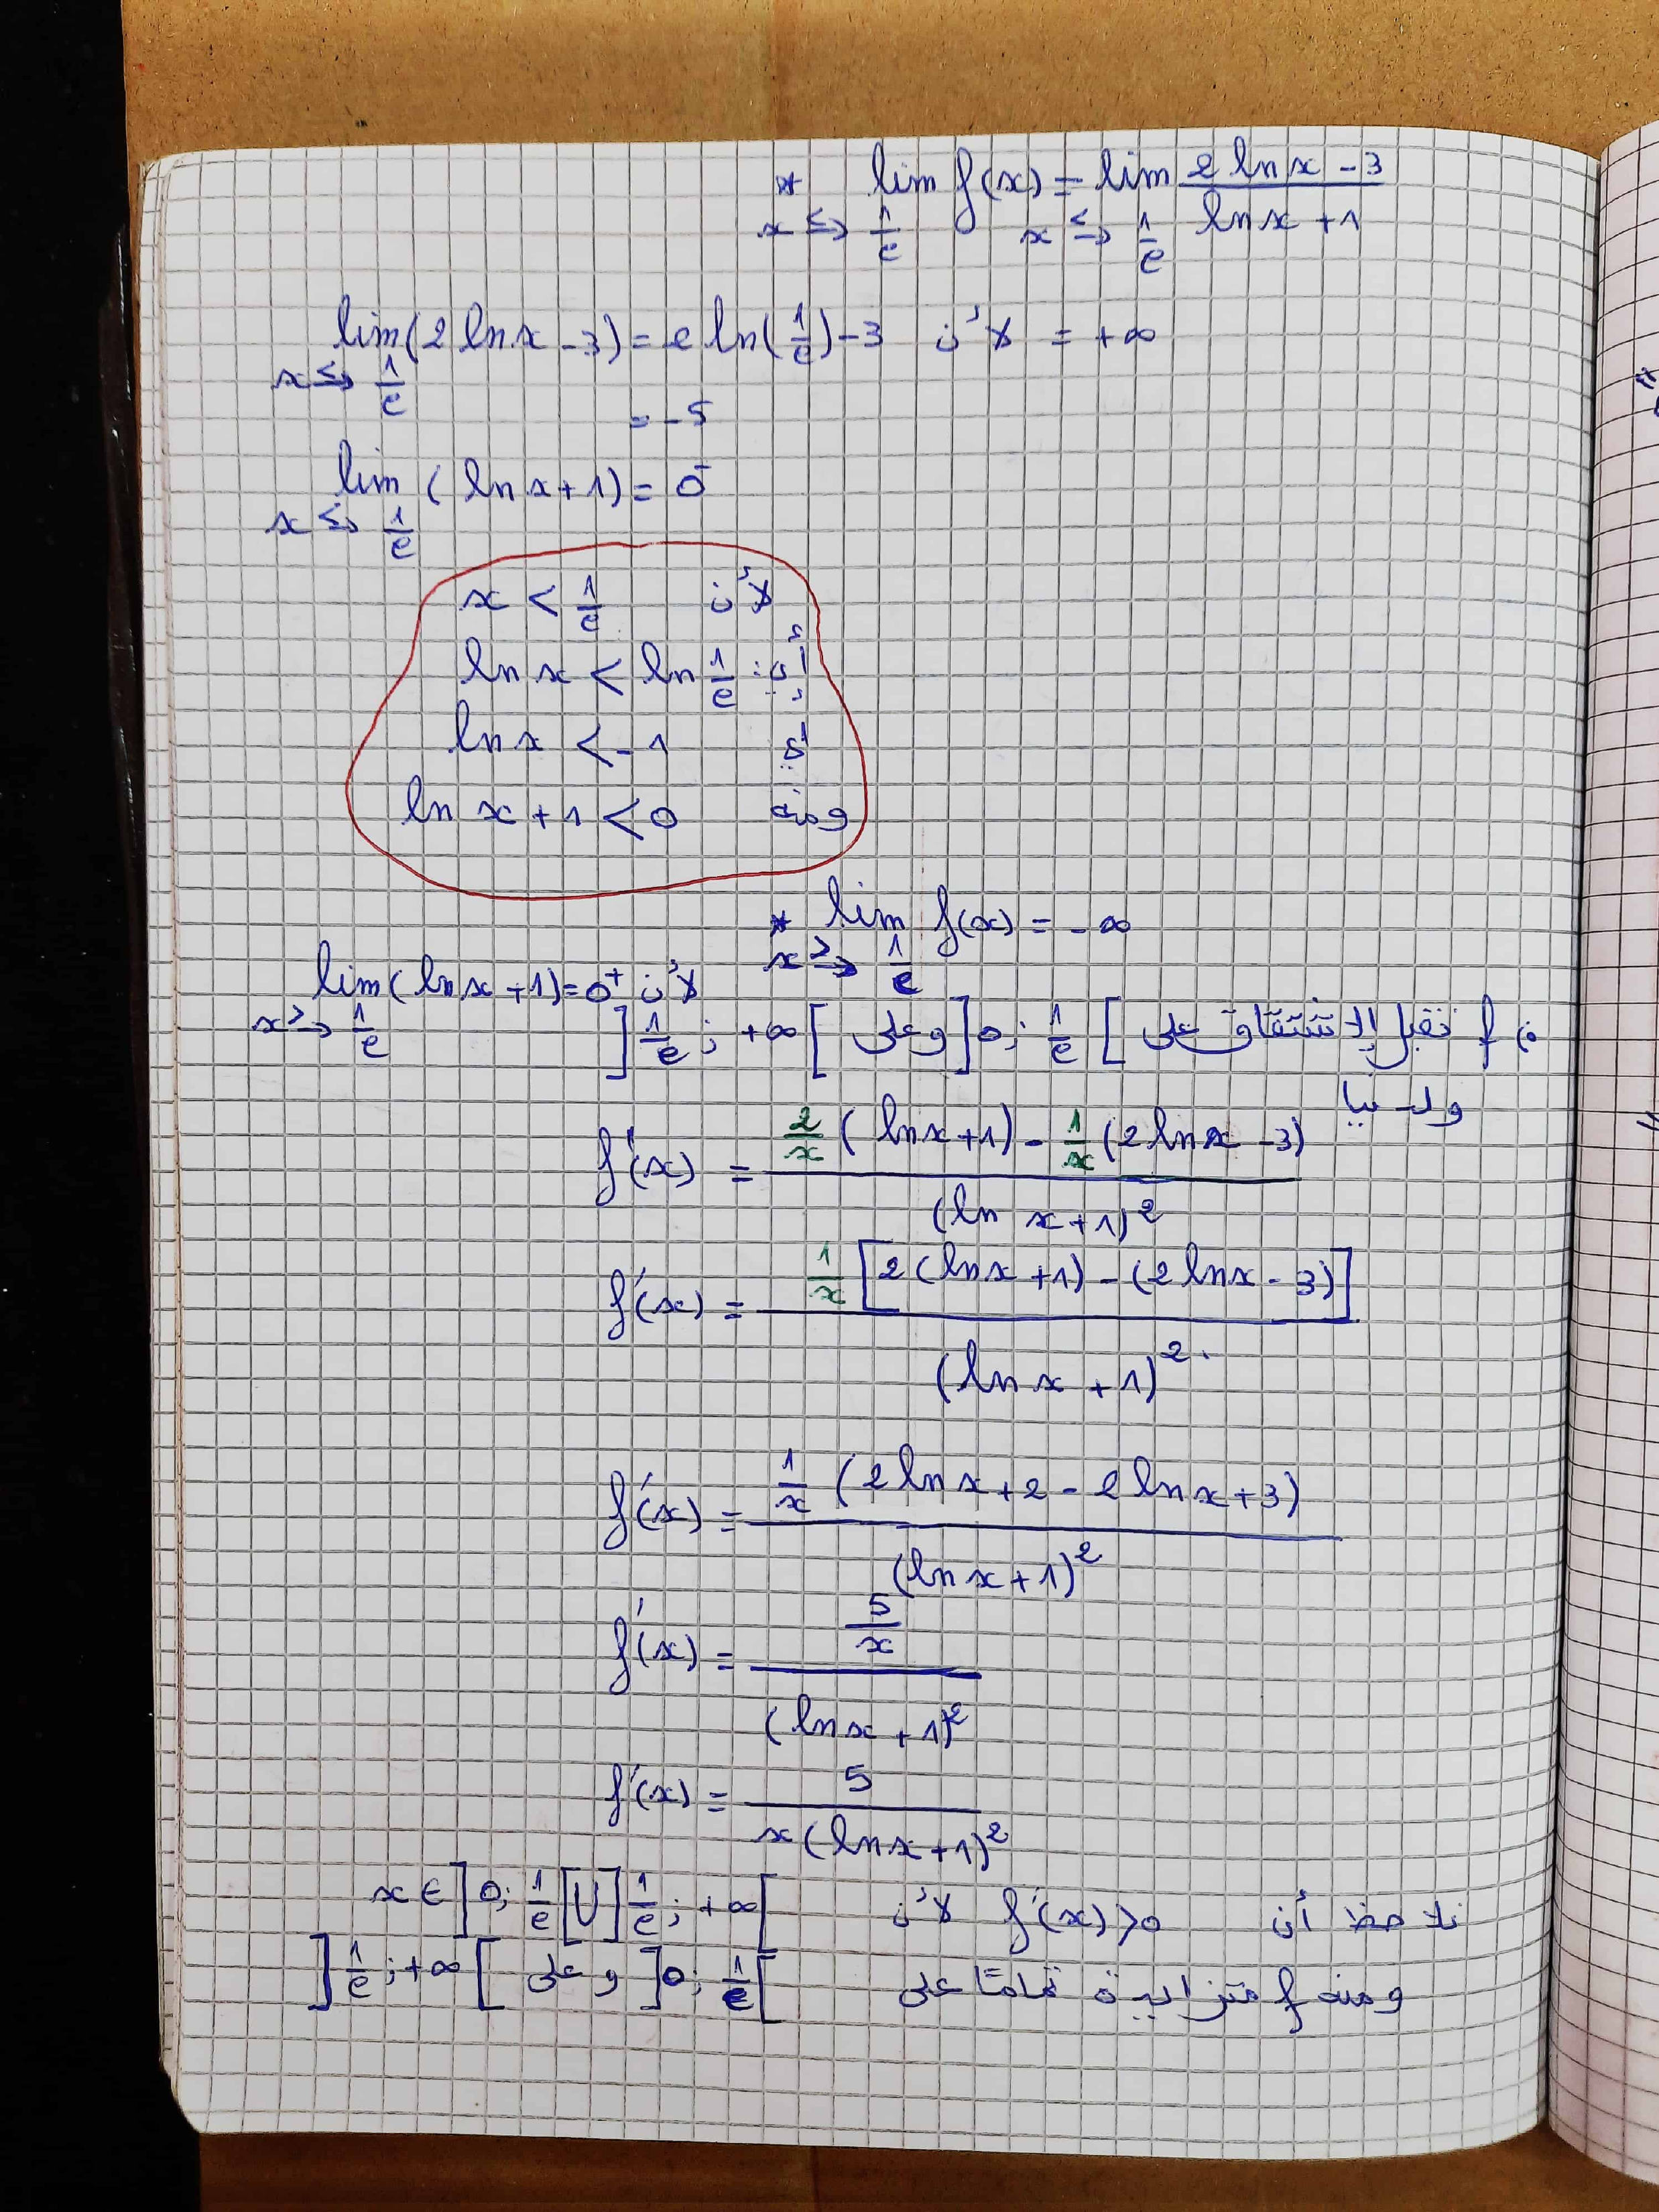 * lim f(x) = lim (2 ln x - 3)/(ln x + 1)
x ≤→ 1/e x ≤→ 1/e
= +∞ لأن lim (2 ln x - 3) = 2 ln(1/e) - 3
x ≤→ 1/e
= -5
lim (ln x + 1) = 0⁻
x ≤→ 1/e
لأن x < 1/e
ln x < ln 1/e
أي ln x < -1
ومنه ln x + 1 < 0
* lim f(x) = -∞
x >→ 1/e
لأن lim (ln x + 1) = 0⁺
x >→ 1/e
f تقبل الاشتقاق على ]0; 1/e[ وعلى ]1/e; +∞[
ولدينا
f'(x) = (2/x (ln x + 1) - 1/x (2 ln x - 3))/(ln x + 1)²
f'(x) = (1/x [2(ln x + 1) - (2 ln x - 3)])/(ln x + 1)²
f'(x) = (1/x (2 ln x + 2 - 2 ln x + 3))/(ln x + 1)²
f'(x) = (5/x)/(ln x + 1)²
f'(x) = 5/(x(ln x + 1)²)
نلاحظ أن f'(x) > 0 لأن x ∈ ]0; 1/e[ U ]1/e; +∞[
ومنه f متزايدة تمامًا على ]0; 1/e[ وعلى ]1/e; +∞[